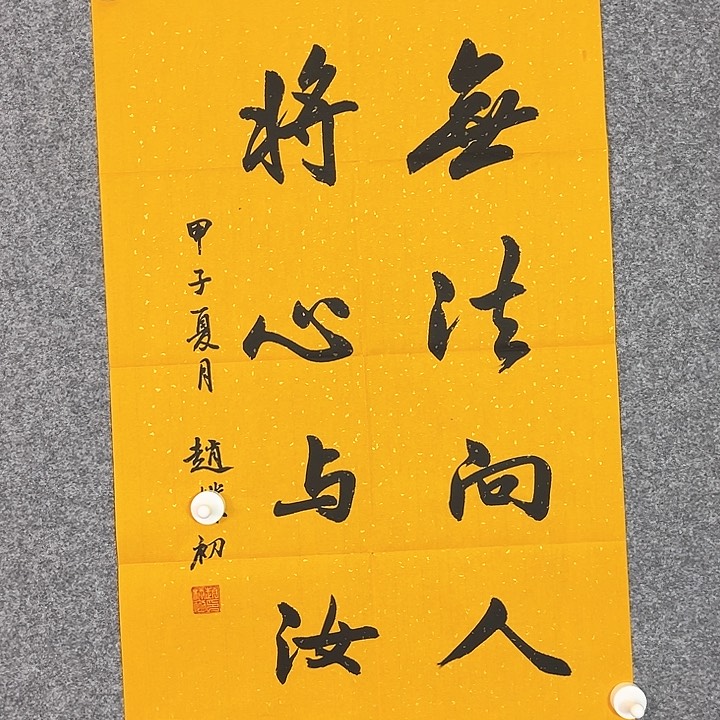 無法向人
將心与汝
甲子夏月 趙 初